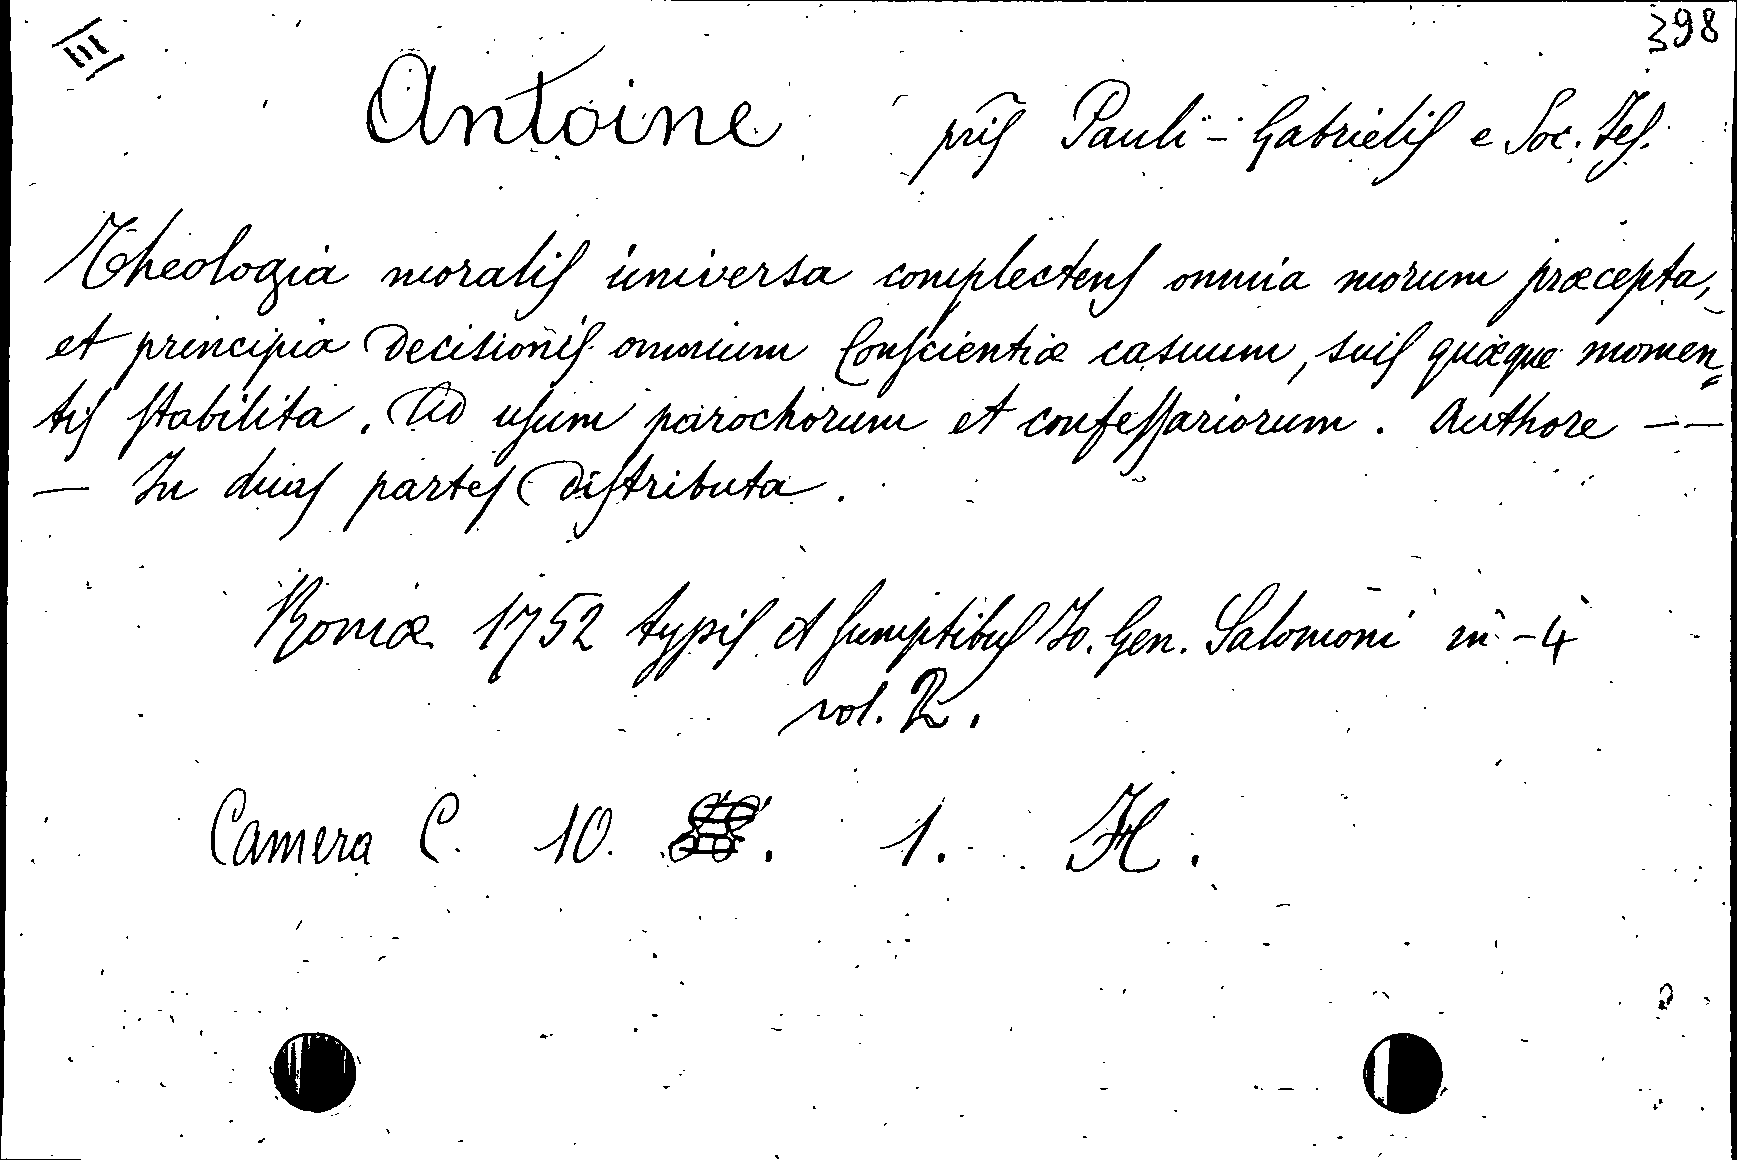 III
398
Antoine pris Pauli-Gabrielis e Soc. Jes.
Theologia moralis universa complectens omnia morum præcepta,
et principia decisionis omnium Conscientiæ casuum, suis quæque momen=
tis stabilita. Ad usum parochorum et confessariorum. Authore --
- In duas partes distributa.
Romæ 1752 typis et sumptibus Jo. Gen. Salomoni in-4
vol. 2.
Camera C. 10. 1. H.